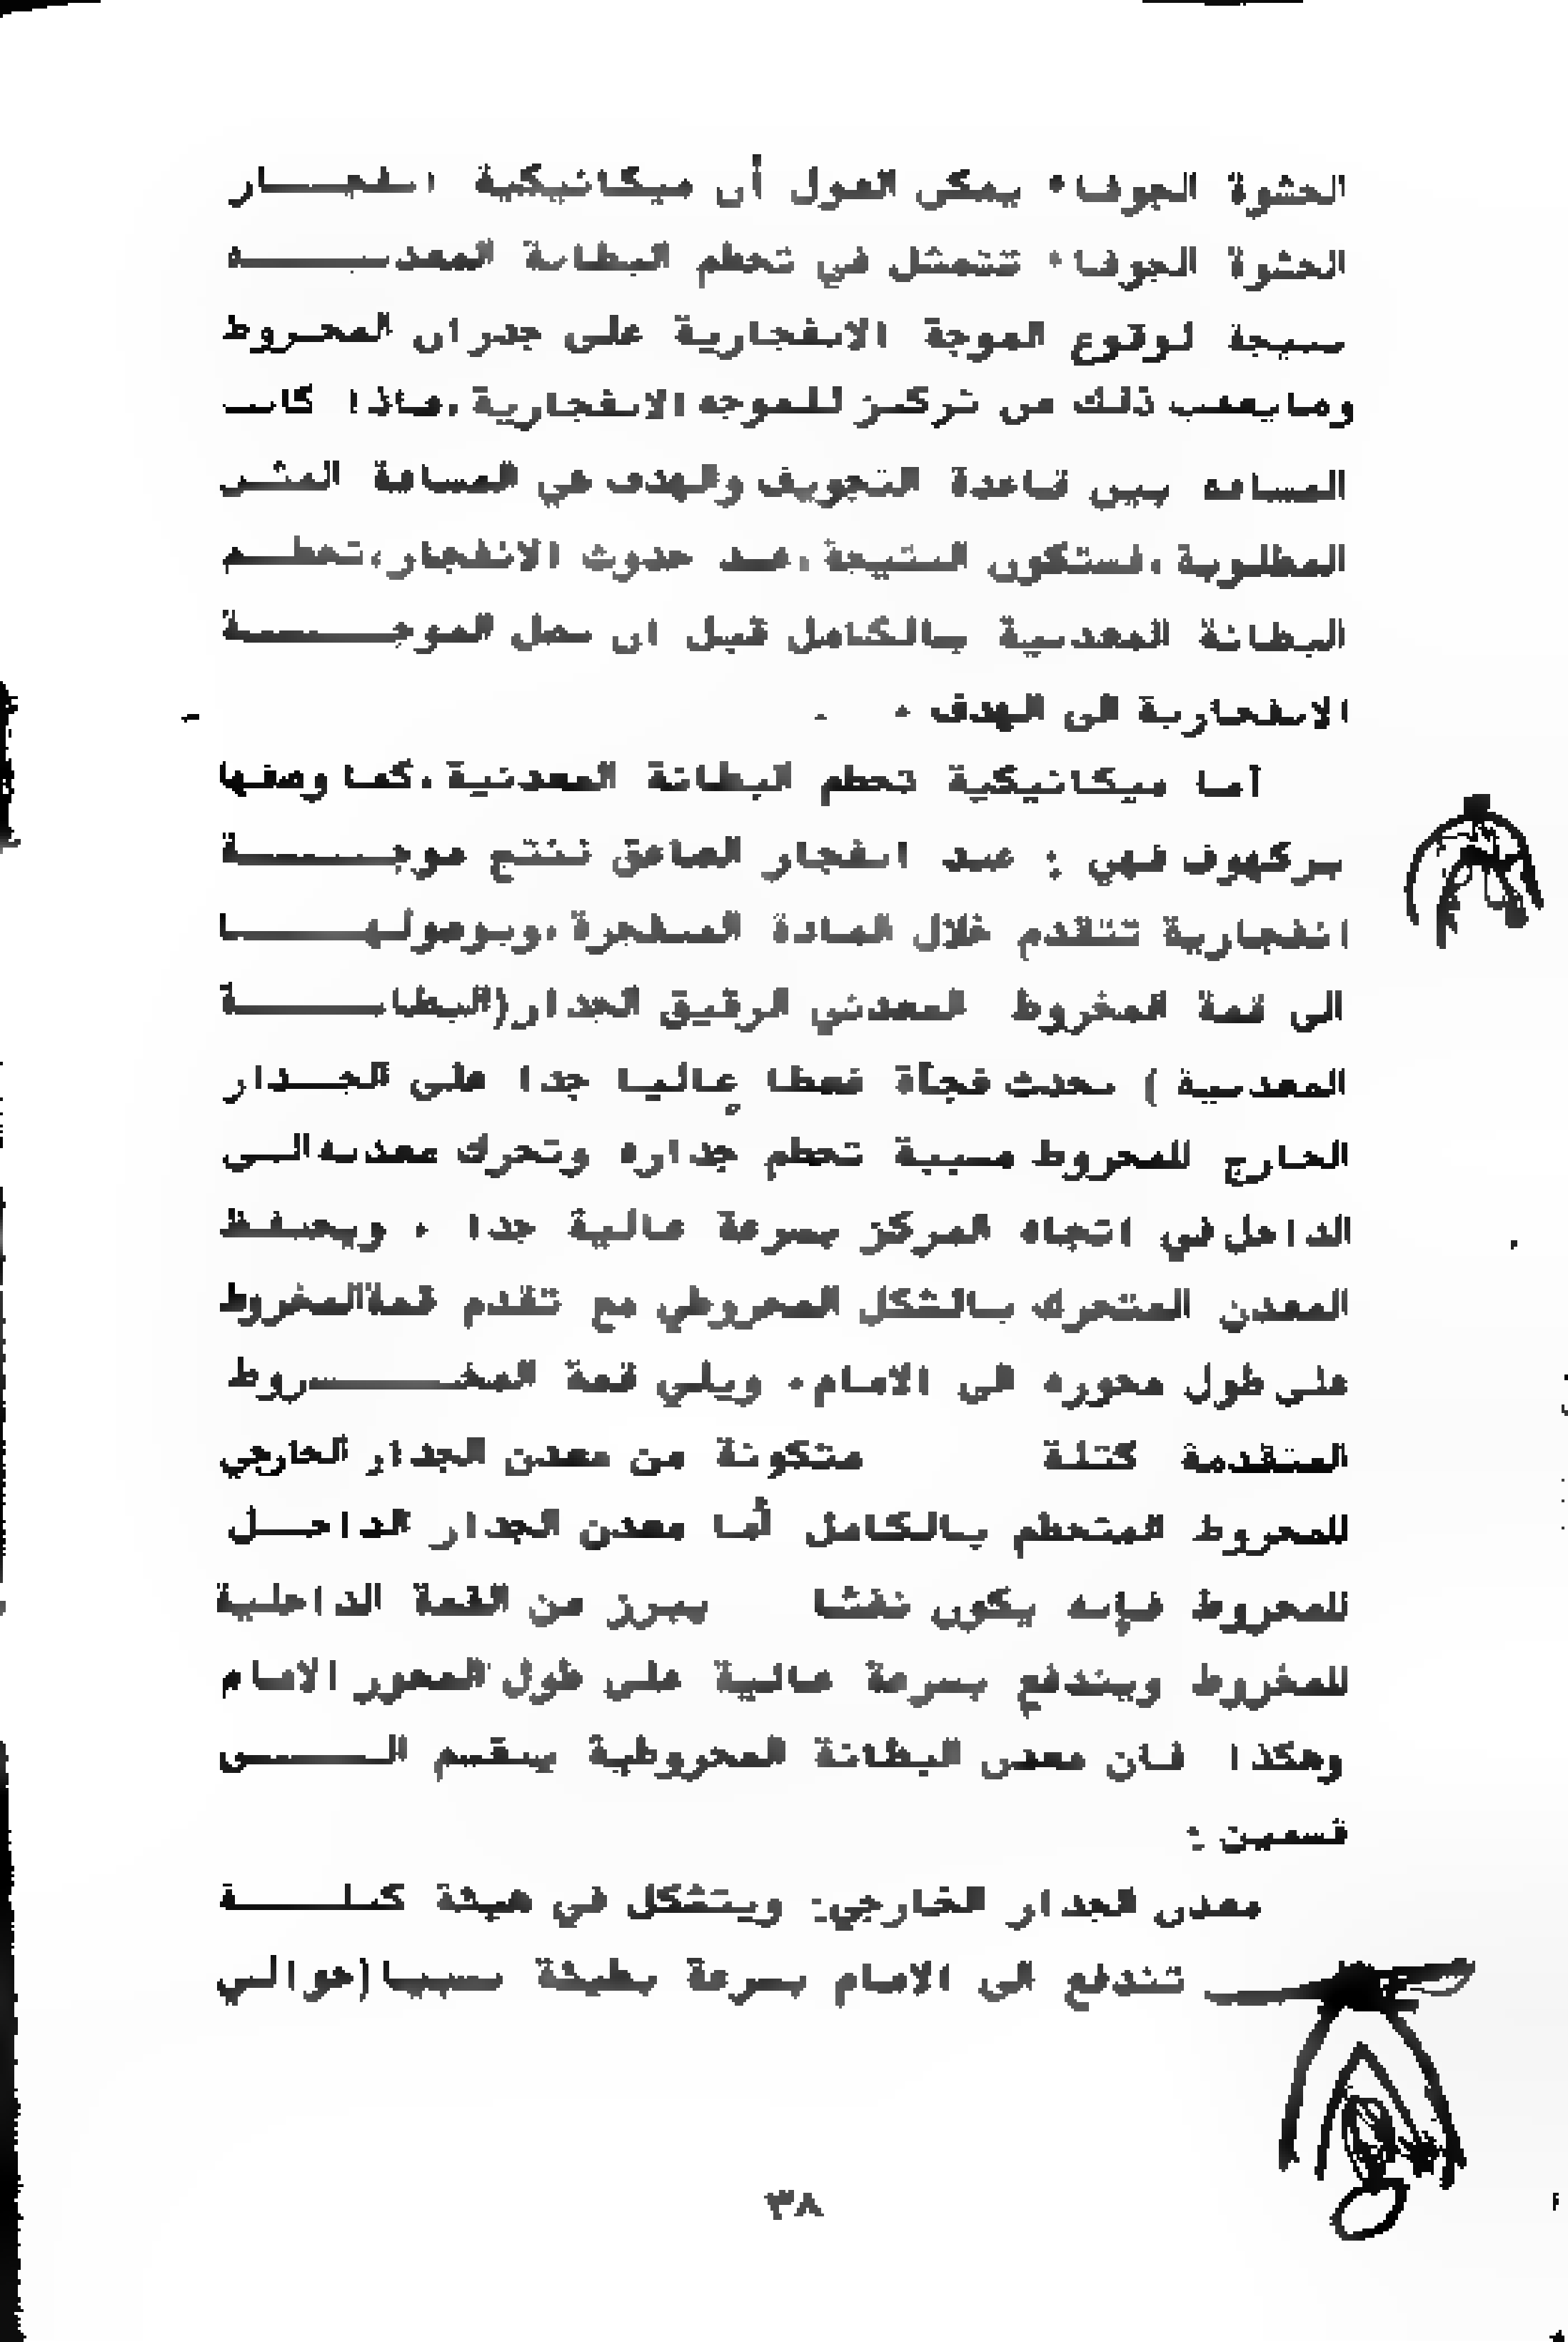 الحشوة الجوفاء يمكن القول أن ميكانيكية انفجــــار
الحشوة الجوفاء تتمثل في تحطم البطانة المعدنيــــــة
نتيجة لوقوع الموجة الانفجارية على جدران المخـروط
ومايعقب ذلك من تركـيز للموجه الانفجارية ،فـاذا كانت
المسافه بين قاعدة التجويف والهدف هي المسافة المثـلى
المطلـوبة ،فستكون النتيجة ،عنـد حدوث الانفجار،تحطــم
البطانة المعدنية بـالكامل قبل ان تصل الموجــــــــة
الانفجارية الى الهدف ٠
أمـا ميكانيكية تحطم البطانة المعدنية ،كمـا وصفهـا
بيركهوف فهي : عند انفجار الصاعق تنتج موجــــــــة
انفجارية تتقدم خلال المادة المتفجرة ،وبـوصولهـــــــا
الى قمة المخروط المعدني الرقيق الجدار(البطانـــــــة
المعدنية ) تحدث فجأة ضغطا عاليـا جدا على الجــدار
الخـارج للمخروط مسببة تحطم جداره وتحرك معدنه الـى
الداخل في اتجاه المركز بسرعة عالية جدا ٠ ويحتفظ
المعدن المتحرك بـالشكل المخروطي مع تقدم قمةالمخروط
على طول محوره الى الامام٠ ويلي قمة المخــــــــروط
المتقدمة كتلة متكونة من معدن الجدار الخارجي
للمخروط المتحطم بـالكامل أما معدن الجدار الداخــل
للمخروط فـإنه يكون نفثـا يبرز من القمة الداخلية
للمخروط ويندفع بسرعة عالية على طول المحور الامام
وهكذا فـان معدن البطانة المخروطية ينقسم الــــــى
قسمين :
معدن الجدار الخارجي: ويتشكل في هيئة كتلـــــــة
تندفع الى الامام بسرعة بطيئة نسبيـا(حوالـي
٣٨